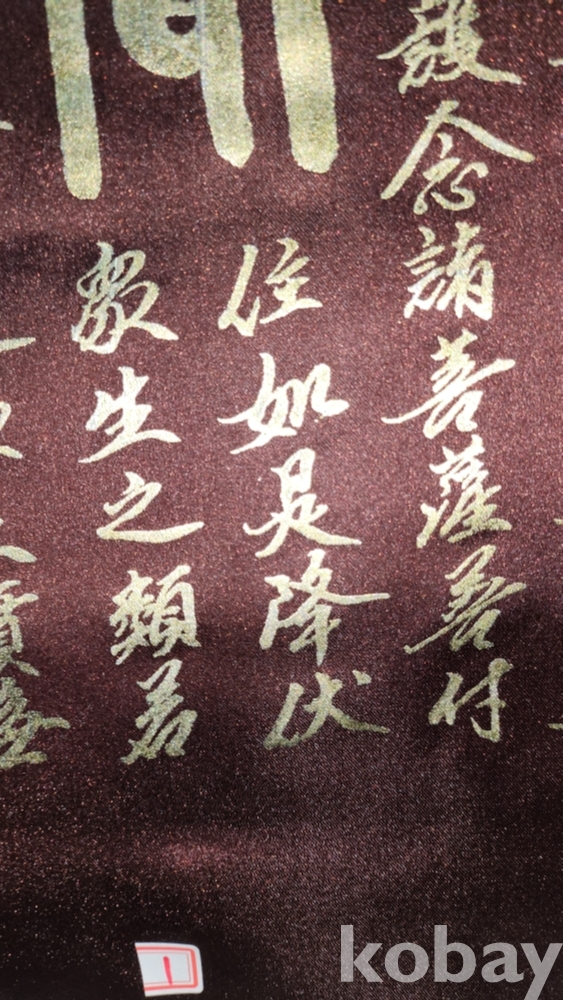 護念諸菩薩善付
住如是降伏
衆生之類若
實無
1
kobay